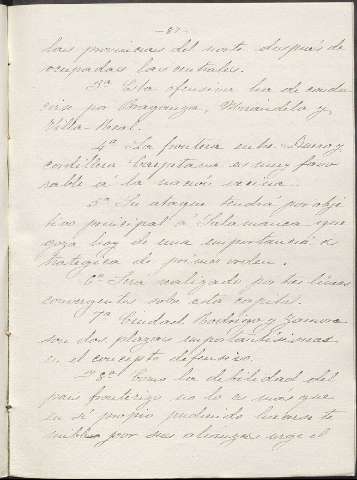 -87-
las provincias del norte después de
ocupadas las centrales.
3ª Esta ofensiva ha de condu
cirse por Braganza, Mirandela y
Villa-Real.
4ª La frontera entre Duero y
cordillera Carpetana es muy favo
rable á la nación vecina.
5ª Su ataque tendrá por obje
tivo principal á Salamanca que
goza hoy de una importancia es
trategica de primer orden.
6ª Sera realizado por tres líneas
convergentes sobre esta capital.
7ª Ciudad Rodrigo y Zamora
son dos plazas importantísimas
en el concepto defensivo.
8ª Como la debilidad del
pais fronterizo no lo es mas que
en si propio pudiendo hacerse te
mible por sus alianzas urge el